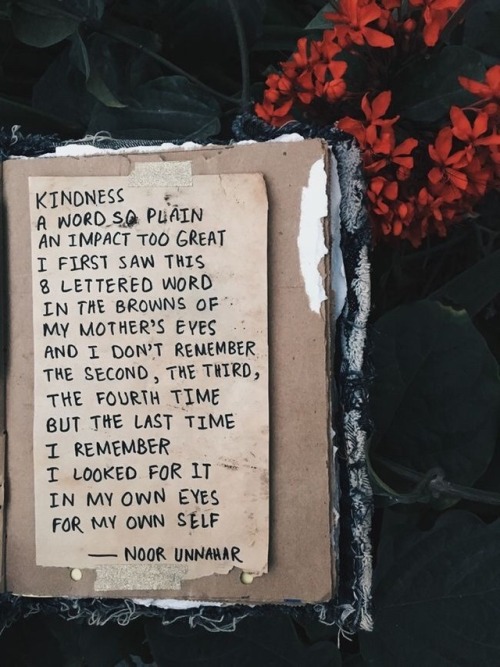 KINDNESS
A WORD SO PLAIN
AN IMPACT TOO GREAT
I FIRST SAW THIS
8 LETTERED WORD
IN THE BROWNS OF
MY MOTHER'S EYES
AND I DON'T REMEMBER
THE SECOND, THE THIRD,
THE FOURTH TIME
BUT THE LAST TIME
I REMEMBER
I LOOKED FOR IT
IN MY OWN EYES
FOR MY OWN SELF
— NOOR UNNAHAR